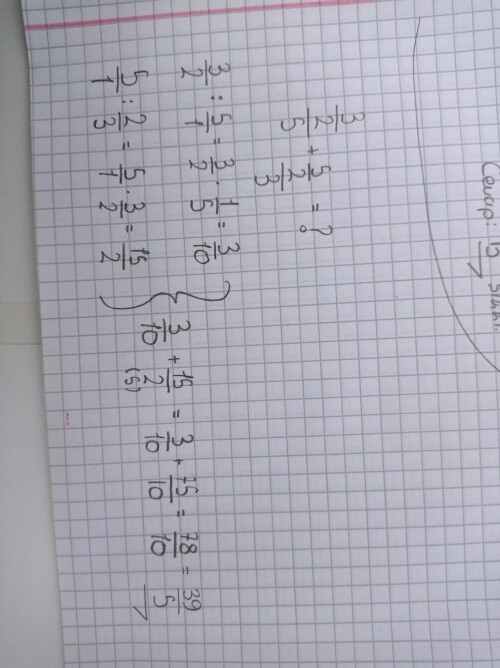 15
3/2/5 + 5/2/3 = ?
3/2 : 5/1 = 3/2 · 1/5 = 3/10
5/1 : 2/3 = 5/1 · 3/2 = 15/2
} 3/10 + 15/2 (5) = 3/10 + 75/10 = 78/10 = 39/5